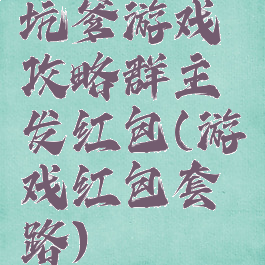 坑爹游戏
攻略群主
发红包(游
戏红包套
路)